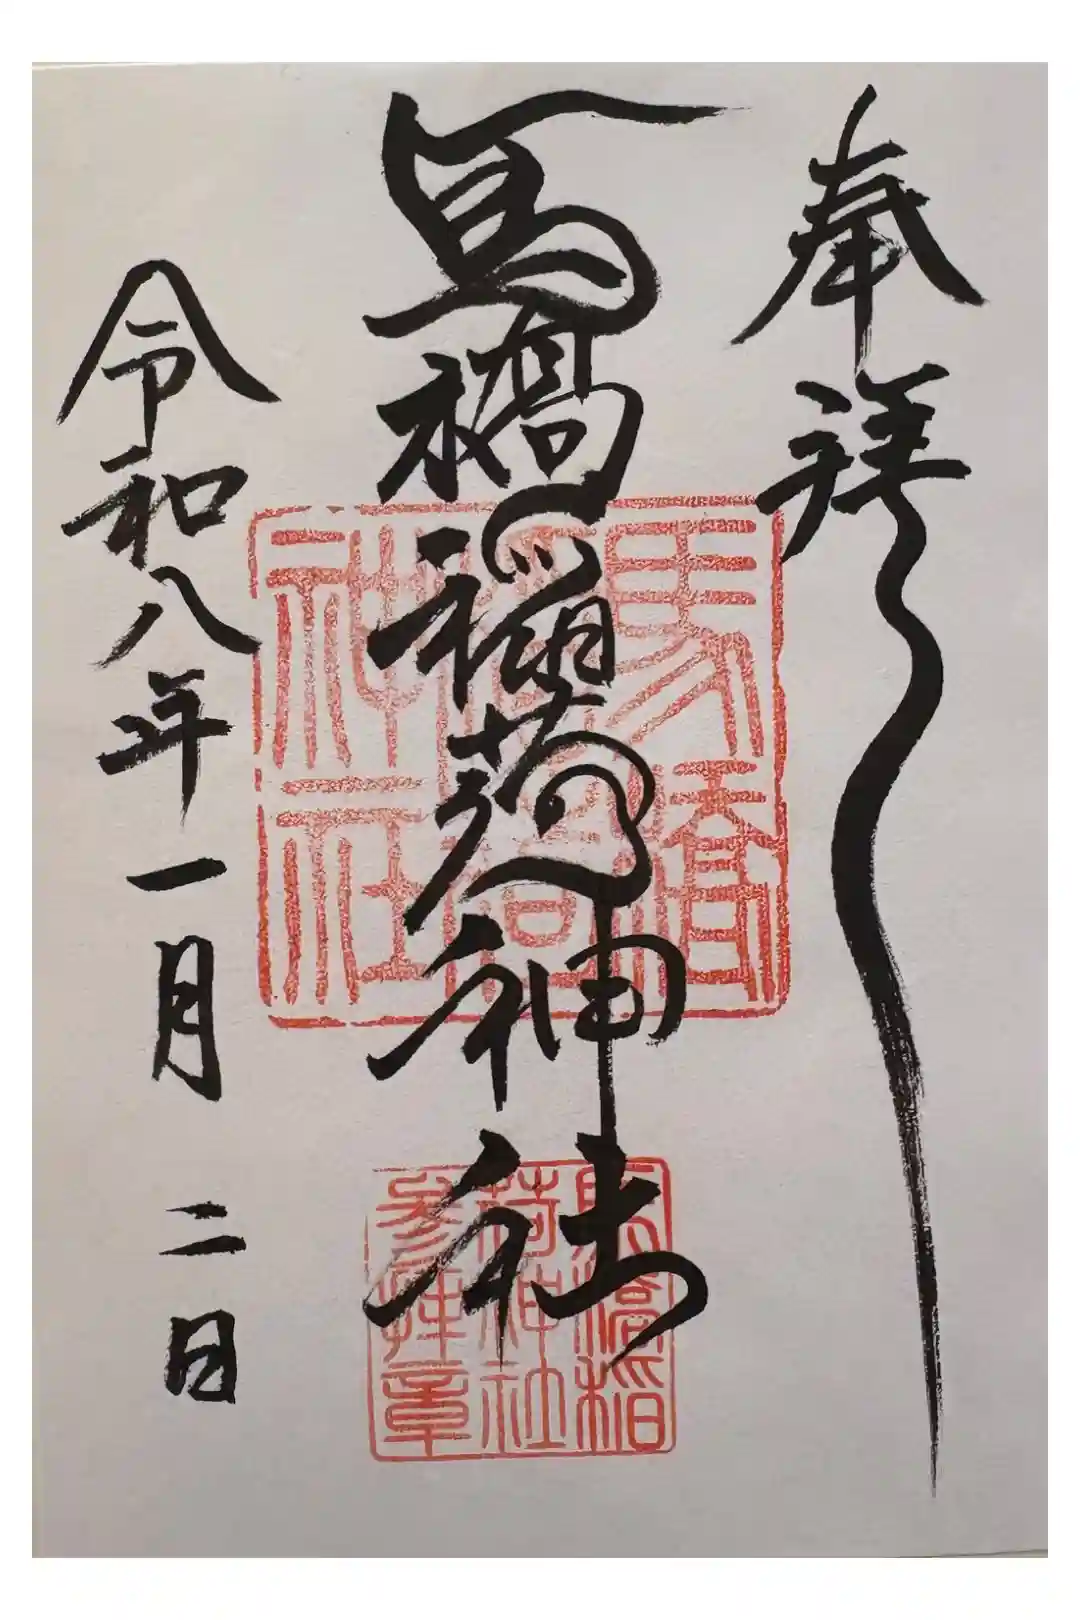 奉拝
馬橋稲荷神社
令和八年一月二日
馬橋
稲荷
神社
馬橋稲
荷神社
参拝章